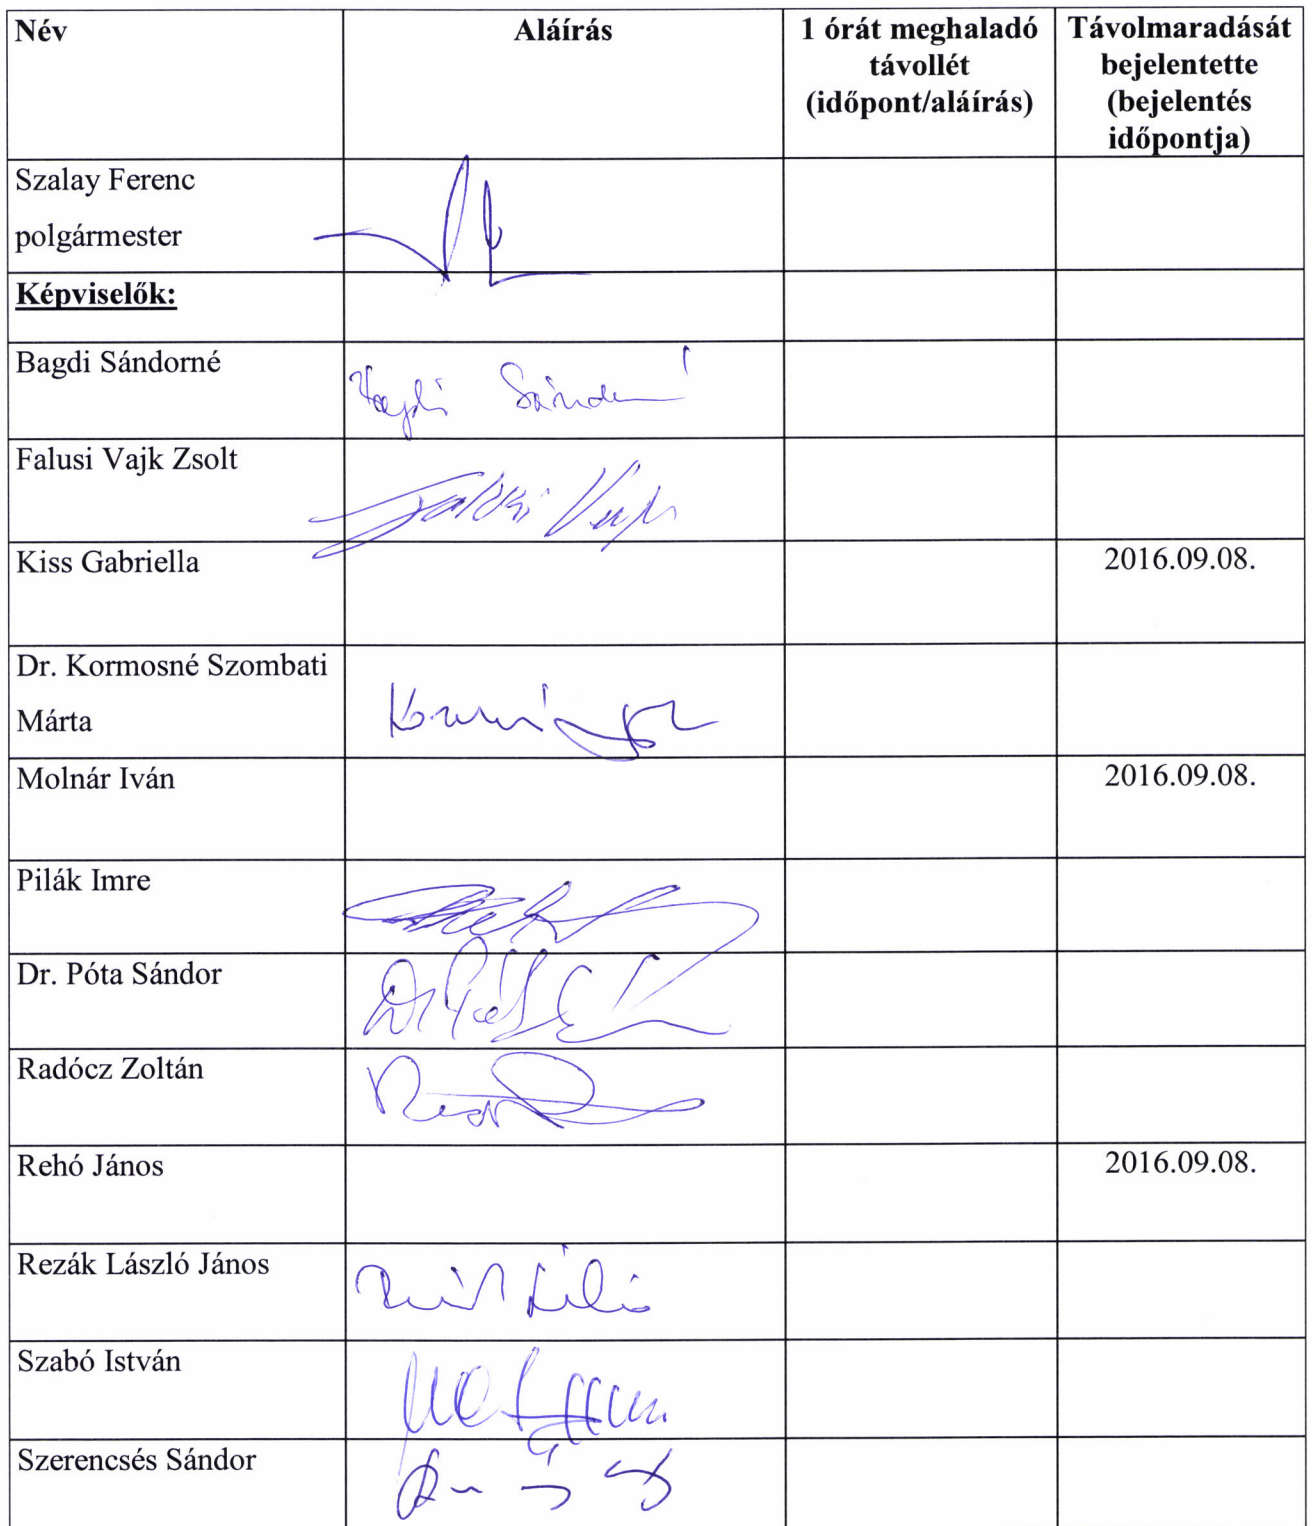 Név
Aláírás
1 órát meghaladó
távollét
(időpont/aláírás)
Távolmaradását
bejelentette
(bejelentés
időpontja)
Szalay Ferenc
polgármester
Képviselők:
Bagdi Sándorné
Falusi Vajk Zsolt
Kiss Gabriella
2016.09.08.
Dr. Kormosné Szombati
Márta
Molnár Iván
2016.09.08.
Pilák Imre
Dr. Póta Sándor
Radócz Zoltán
Rehó János
2016.09.08.
Rezák László János
Szabó István
Szerencsés Sándor